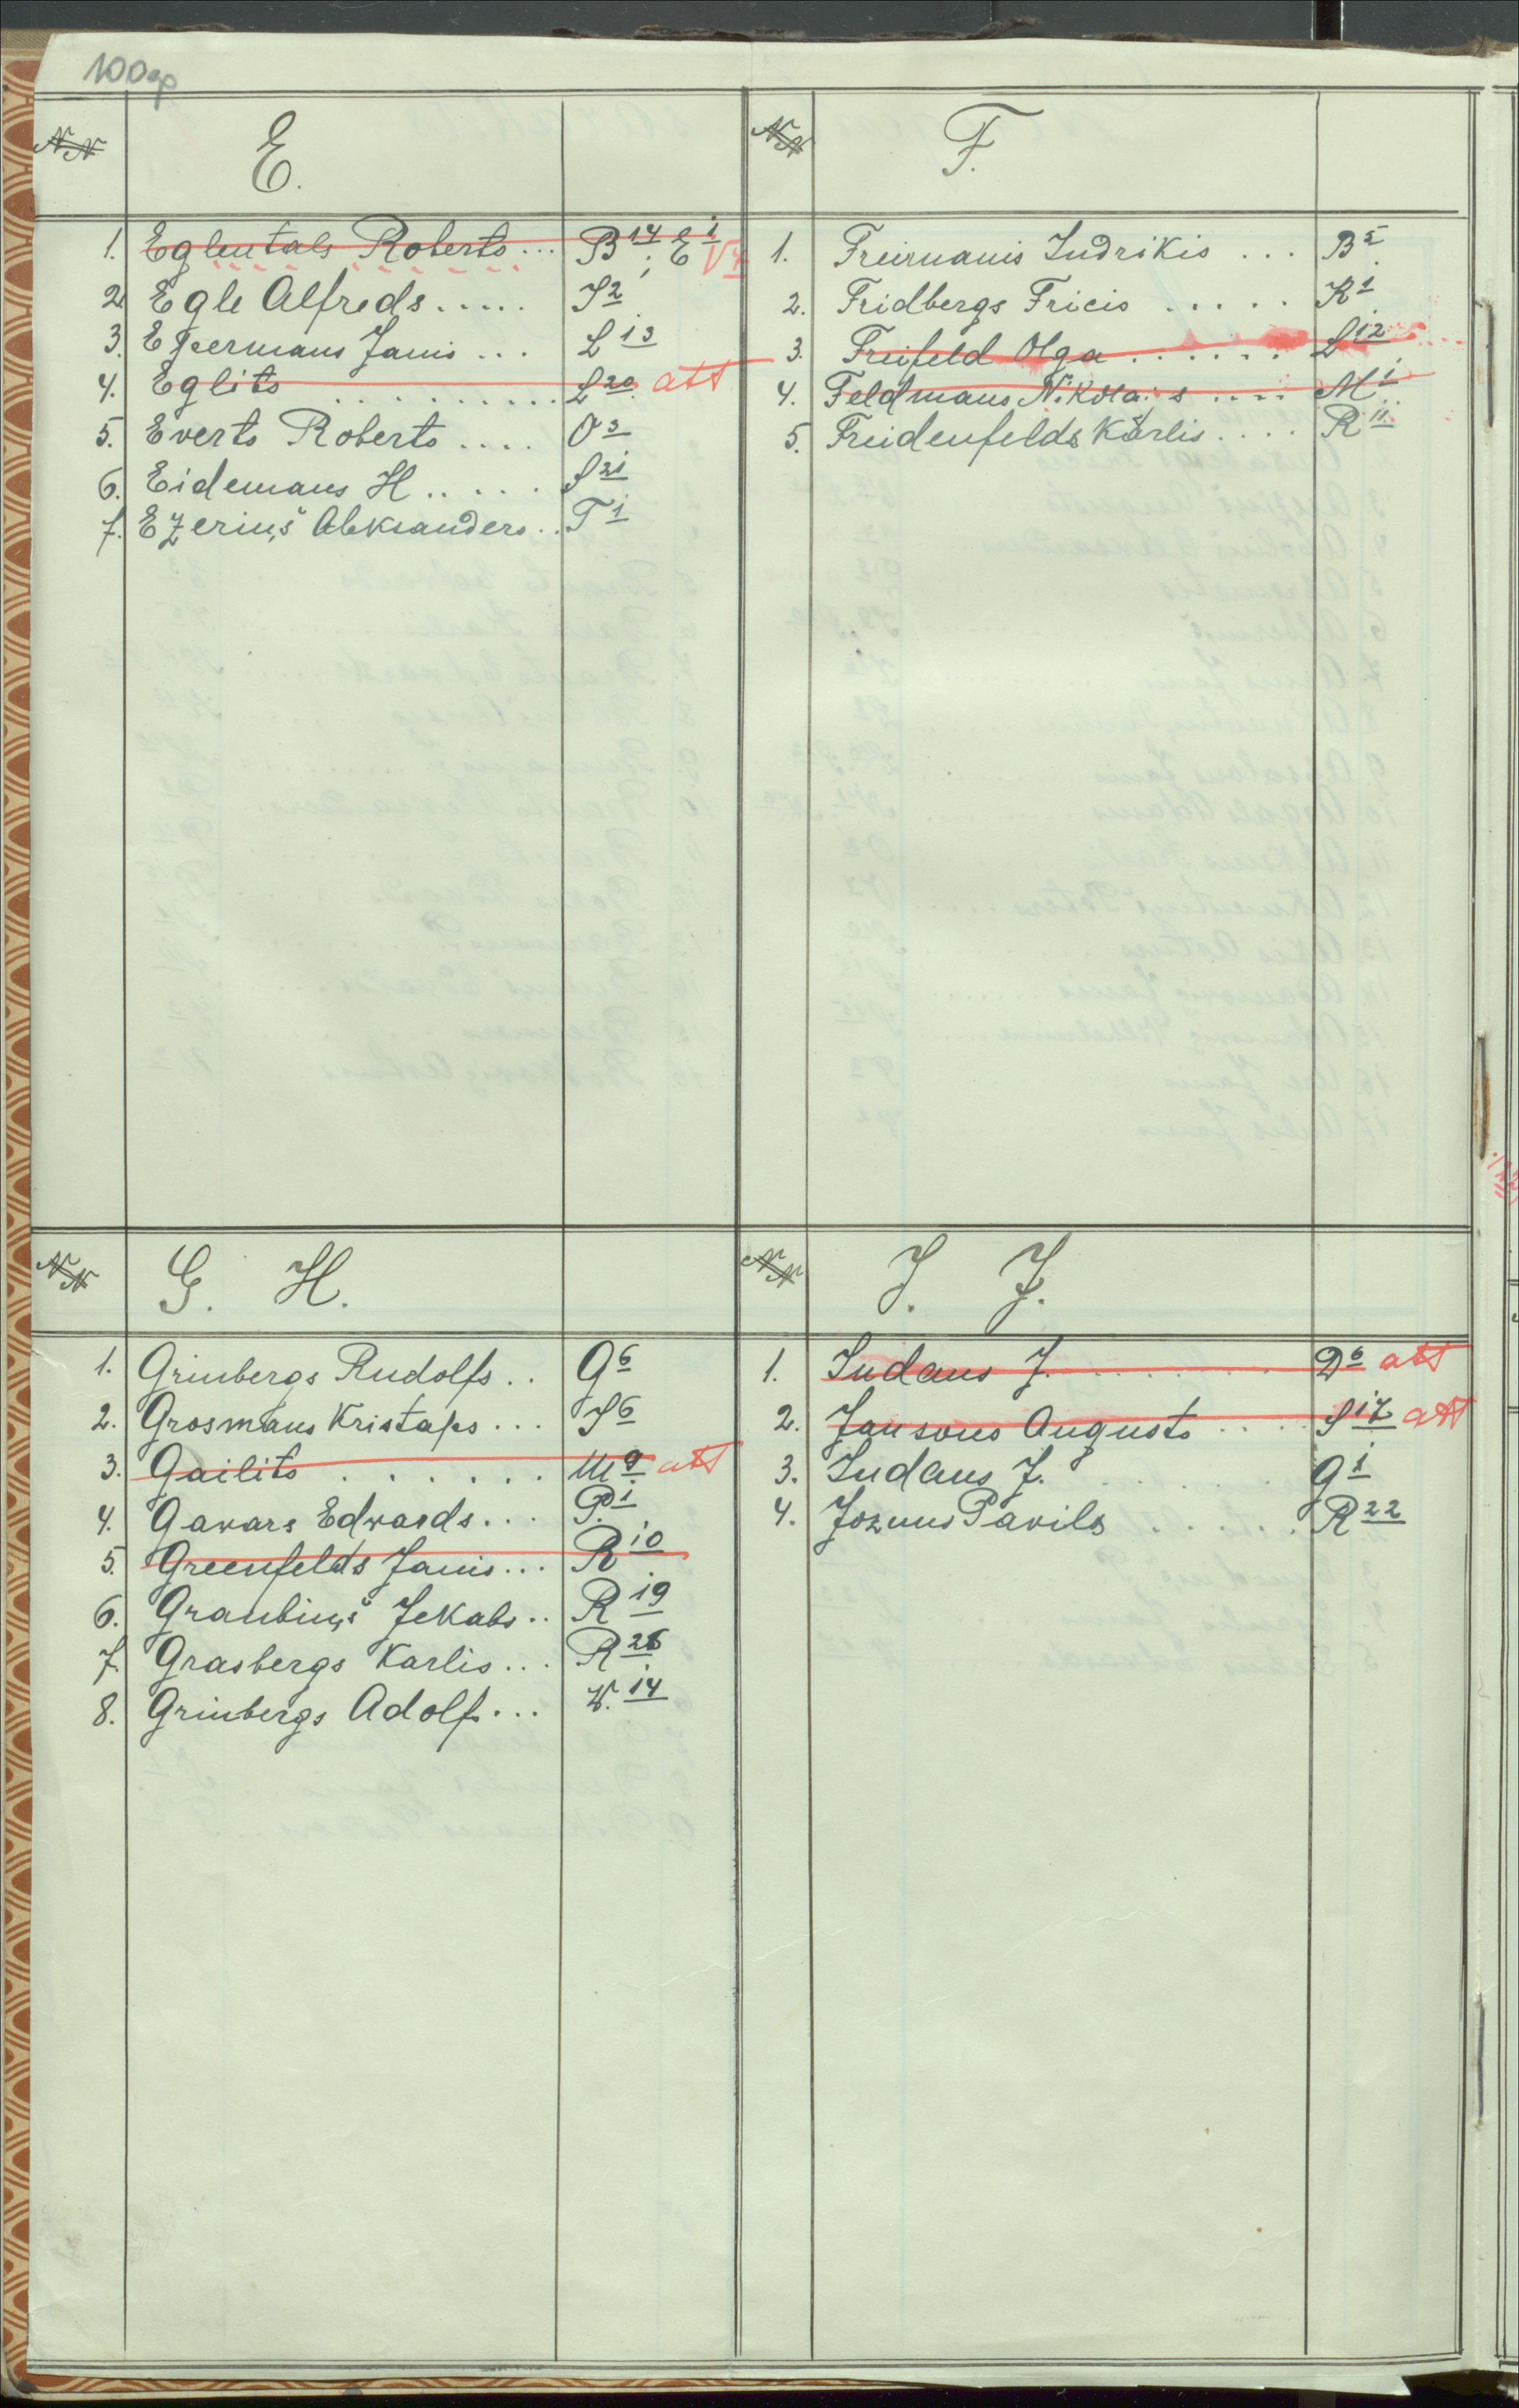 100 ap
NN E.
1. Eglentals Roberts... B 14; E 1 V 4
2 Egle Alfreds..... J 2
3. Epermans Janis... L 13
4. Eglits .......... L 20. att
5. Everts Roberts.... O 3
6. Eidemans H..... S 21
7. Ezeriņš Aleksanders.. T 1
NN F.
1. Freimanis Indrikis... B 5
2. Fridbergs Fricis ..... K 1
3. Freifeld Olga ...... L 12
4. Feldmans Nikolajs .... M 1
5. Freidenfelds Kārlis.... R 11
NN G. H.
1. Grinbergs Rudolfs.. G 6
2. Grosmans Kristaps... J 6
3. Gailits ...... M 9 att
4. Gavars Edvards... P. 1
5. Greenfelds Janis... R 10
6. Graubiņš Jekabs.. R 19
7. Grasbergs Karlis... R 26
8. Grinbergs Adolfs... W. 14
NN J. J.
1. Indans J. ........ D 6 att
2. Jansons Augusts .... S 17 att
3. Indans J. ...... G 1
4. Jozuus Pavils ..... R 22